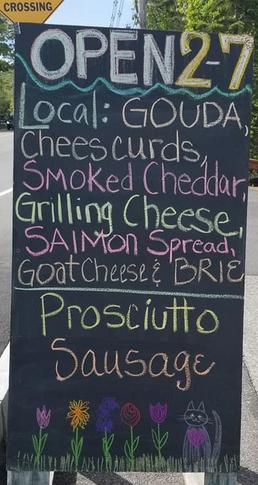 CROSSING
OPEN 2-7
Local: GOUDA,
Cheescurds,
Smoked Cheddar,
Grilling Cheese,
SAlMon Spread,
Goat Cheese & BRIE
Prosciutto
Sausage